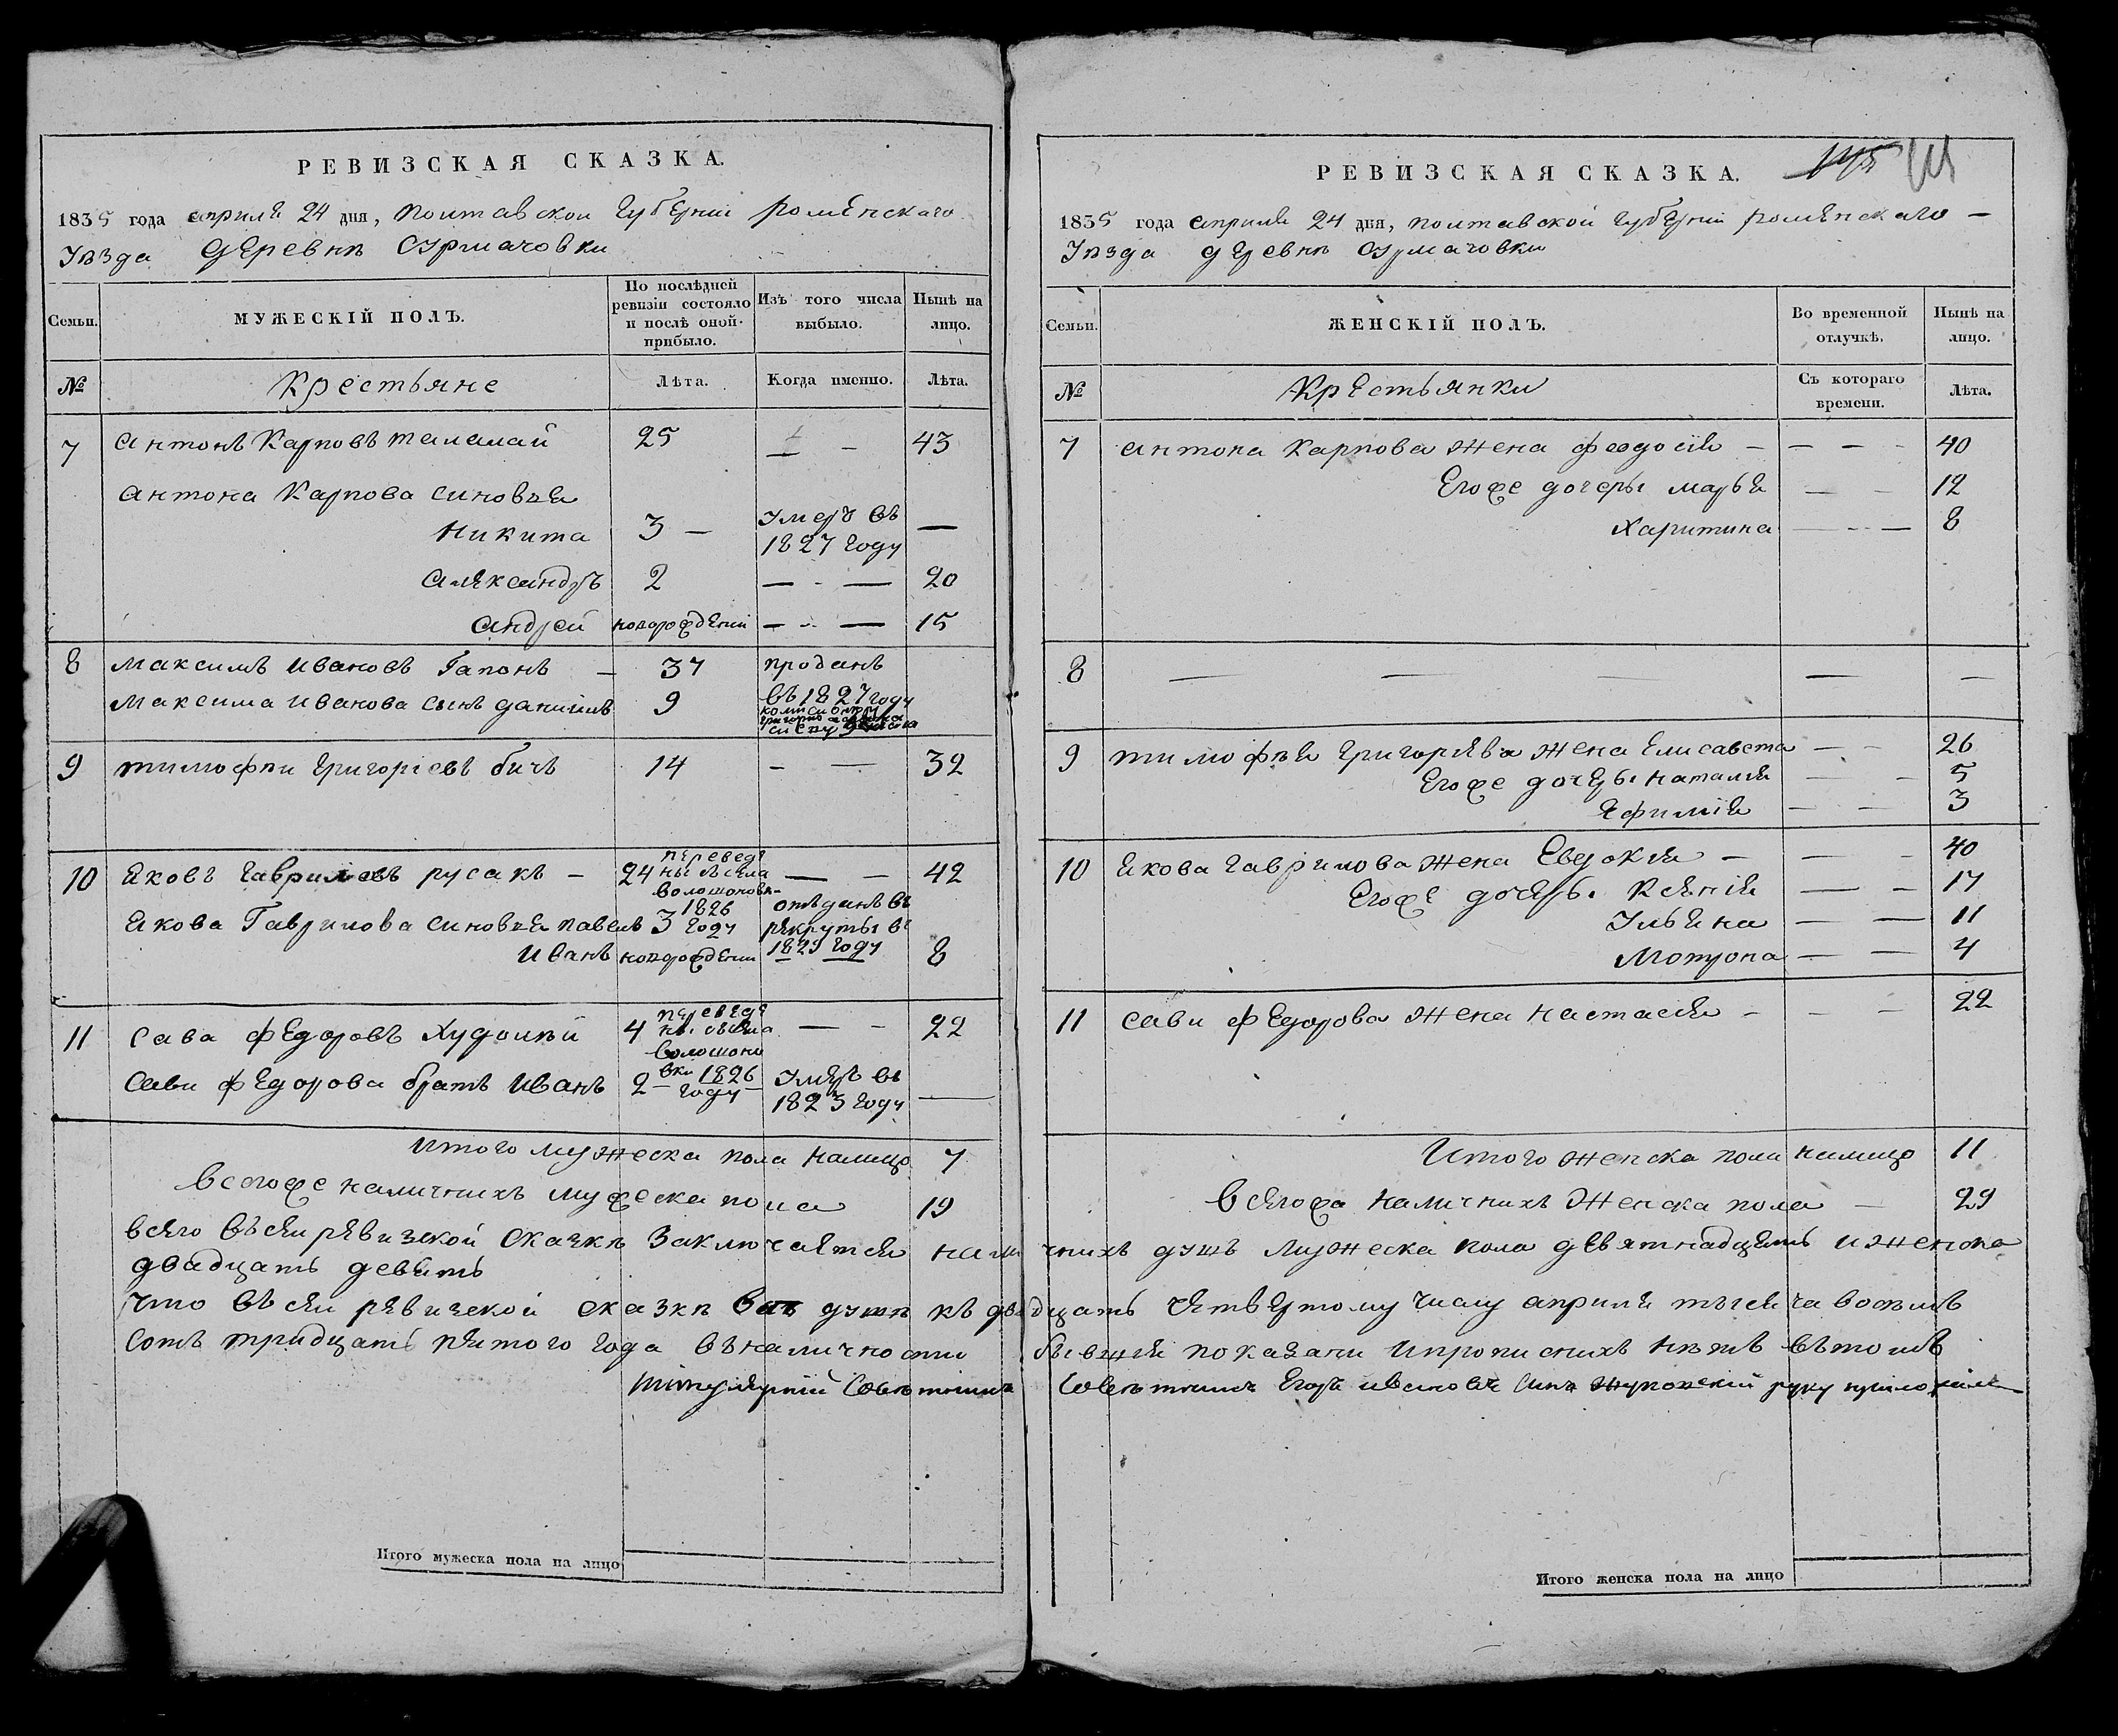 РЕВИЗСКАЯ СКАЗКА.
1835 года апреля 24 дня, полтавской губерніи роменскаго
Уѣзда деревнѣ Сурмачовки
Семьи.
МУЖЕСКІЙ ПОЛЪ.
По послѣдней ревизіи состояло и послѣ оной прибыло.
Изъ того числа выбыло.
Нынѣ на лицо.
№ Крестьяне Лѣта. Когда именно. Лѣта.
7 Антонъ Карповъ талалай 25 — 43
Антона Карпова синовъя
Никита 3 — умеръ въ 1827 году —
Александръ 2 — - — 20
Андрей новорожденій — - — 15
8 Максимъ Ивановъ Гапонъ — 37 проданъ
Максима Иванова сынъ данимъ 9 въ 1827 году
9 тимофѣи григоріевъ бичъ 14 - — 32
10 Яковъ гавриловъ русакъ — 24 переведены съ села волошонов- 1826 году — - 42
Якова Гаврилова синовъя павелъ 3 отъданъ въ рекруты въ 1829 году
Иванъ новорожденій 8
11 Сава федоровъ Худолѣй 4 переведены съ села волошоновки 1826 году — - 22
Сави федорова братъ Иванъ 2 умеръ въ 1823 году —
Итого мужеска пола налицо 7
Всегоже наличнихъ мужеска пола 19
Итого мужеска пола на лицо
РЕВИЗСКАЯ СКАЗКА.
1835 года апреля 24 дня, полтавской губерніи роменскаго —
Уѣзда деревнѣ Сурмачовки
Семьи.
ЖЕНСКІЙ ПОЛЪ.
Во временной отлучкѣ.
Нынѣ на лицо.
№ Крестьянки Съ котораго времени. Лѣта.
7 Антона Карпова жена феодосія — — — - 40
Егоже дочеры марья — - 12
Харитина — - — 8
8 — — — — —
9 тимофѣя григорьева жена Елисавета — - 26
Егоже дочеры наталія — - 5
Ефимія — — 3
10 Якова гаврилова жена Евдокія — — - 40
Егоже дочеры Ксенія — - 17
Ульяна — — 11
Мотрона — — 4
11 Сави федорова жена настасія - - — 22
Итого женска пола налицо 11
Всегожа наличнихъ женска пола — 29
Итого женска пола на лицо
всего въсей ревизской сказкѣ заключается наличнихъ душъ мужеска пола девятнадцать и женска
двадцать девять
что въсей ревизской сказкѣ всѣ душѣ къ двадцать четвертому числу апреля тысяча восемъ
сотъ тридцать пятого года въналичности бывшія показани ипрописнихъ нѣтъ вътомъ
титулярній Совѣтникъ Совѣтникъ Егоръ ивановъ синъ руку приложилъ